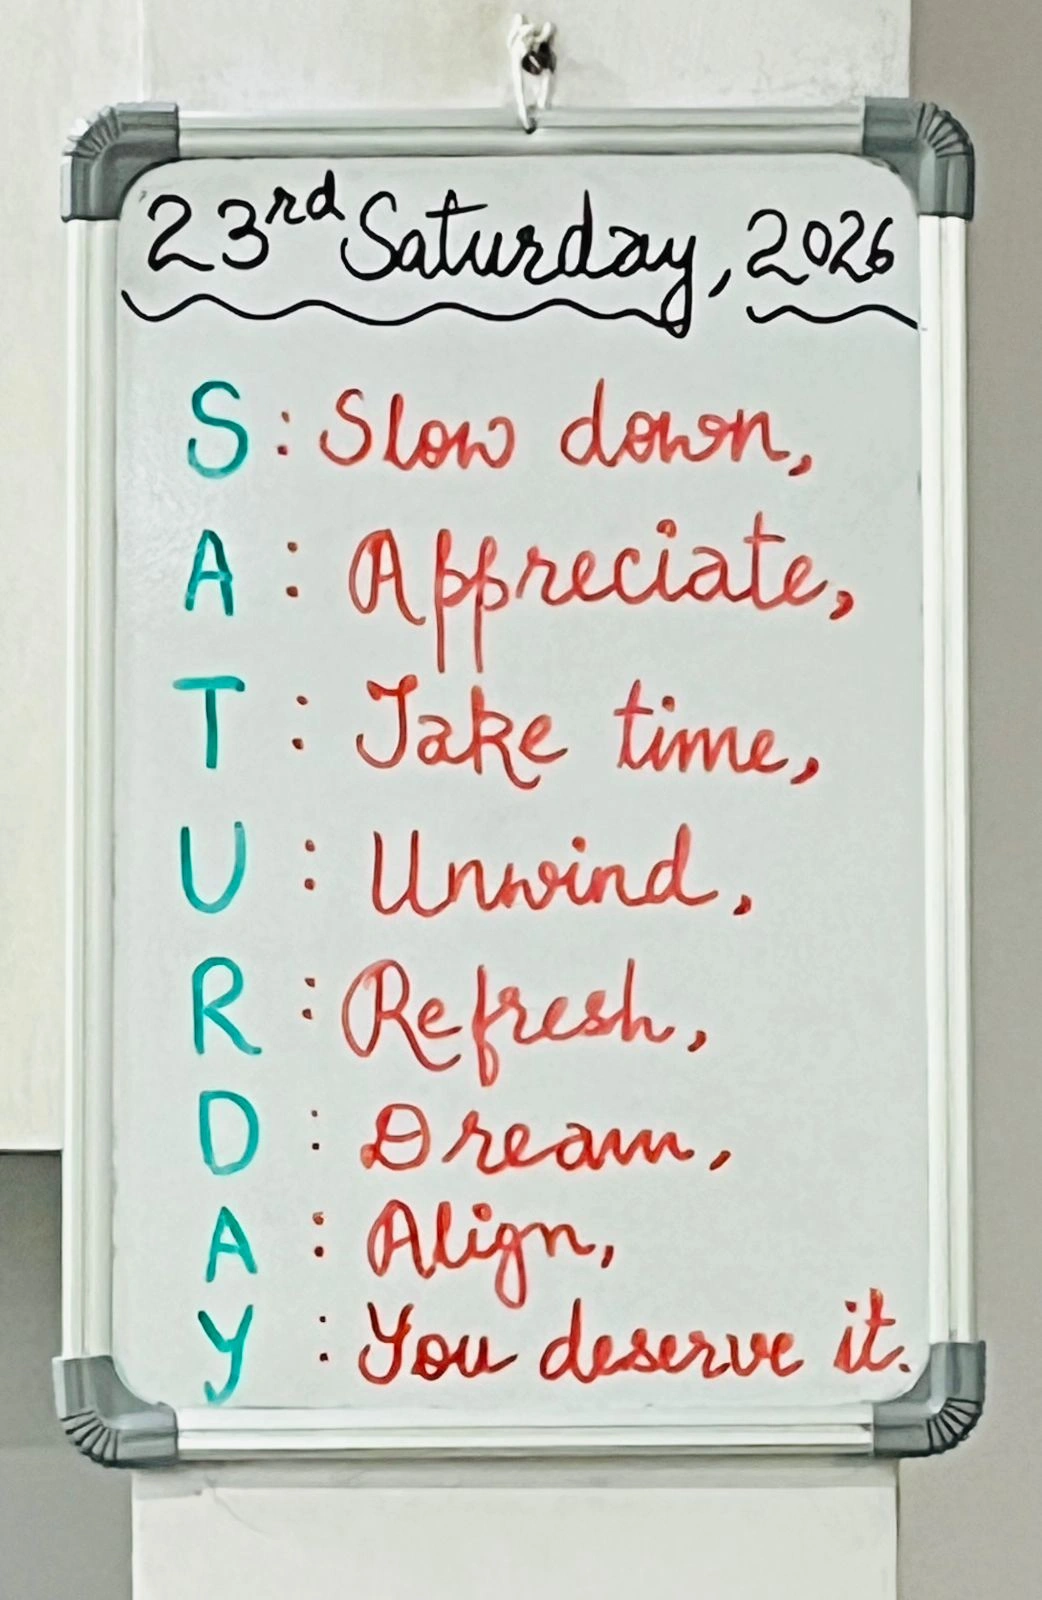 23rd Saturday, 2026
S : Slow down,
A : Appreciate,
T : Take time,
U : Unwind,
R : Refresh,
D : Dream,
A : Align,
Y : You deserve it.